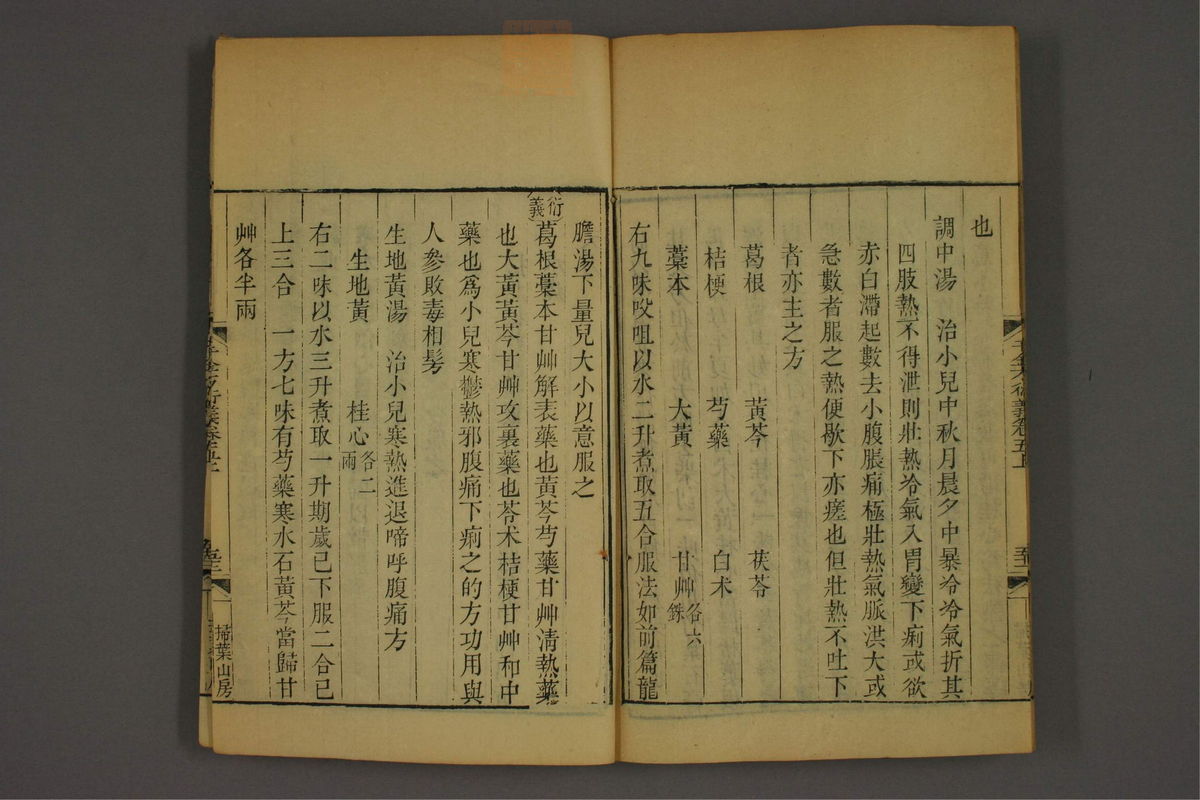 也
調中湯　治小兒中秋月晨夕中暴冷冷氣折其
四肢熱不得泄則壯熱冷氣入胃變下痢或欲
赤白滯起數去小腹脹痛極壯熱氣脈洪大或
急數者服之熱便歇下亦瘥也但壯熱不吐下
者亦主之方
葛根　黃芩　茯苓
桔梗　芍藥　白朮
藁本　大黃　甘艸各六銖
右九味㕮咀以水二升煮取五合服法如前篇龍
膽湯下量兒大小以意服之
〔衍義〕葛根藁本甘艸解表藥也黃芩芍藥甘艸淸熱藥
也大黃黃芩甘艸攻裏藥也苓朮桔梗甘艸和中
藥也爲小兒寒鬱熱邪腹痛下痢之的方功用與
人參敗毒相髣
生地黃湯　治小兒寒熱進退啼呼腹痛方
生地黃　桂心各二兩
右二味以水三升煮取一升期歲已下服二合已
上三合　一方七味有芍藥寒水石黃芩當歸甘
艸各半兩
掃葉山房